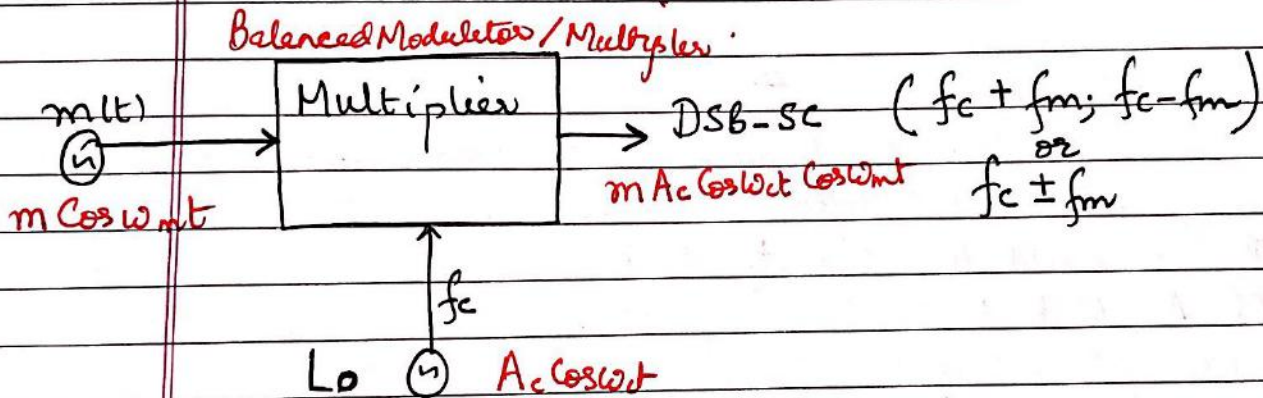 Balanced Modulator / Multiplier.
m(t)
Multiplier
DSB-SC (fc + fm; fc - fm)
or
m Cos ωmt
m Ac Cosωct Cosωmt
fc ± fm
fc
Lo
Ac Cosωct